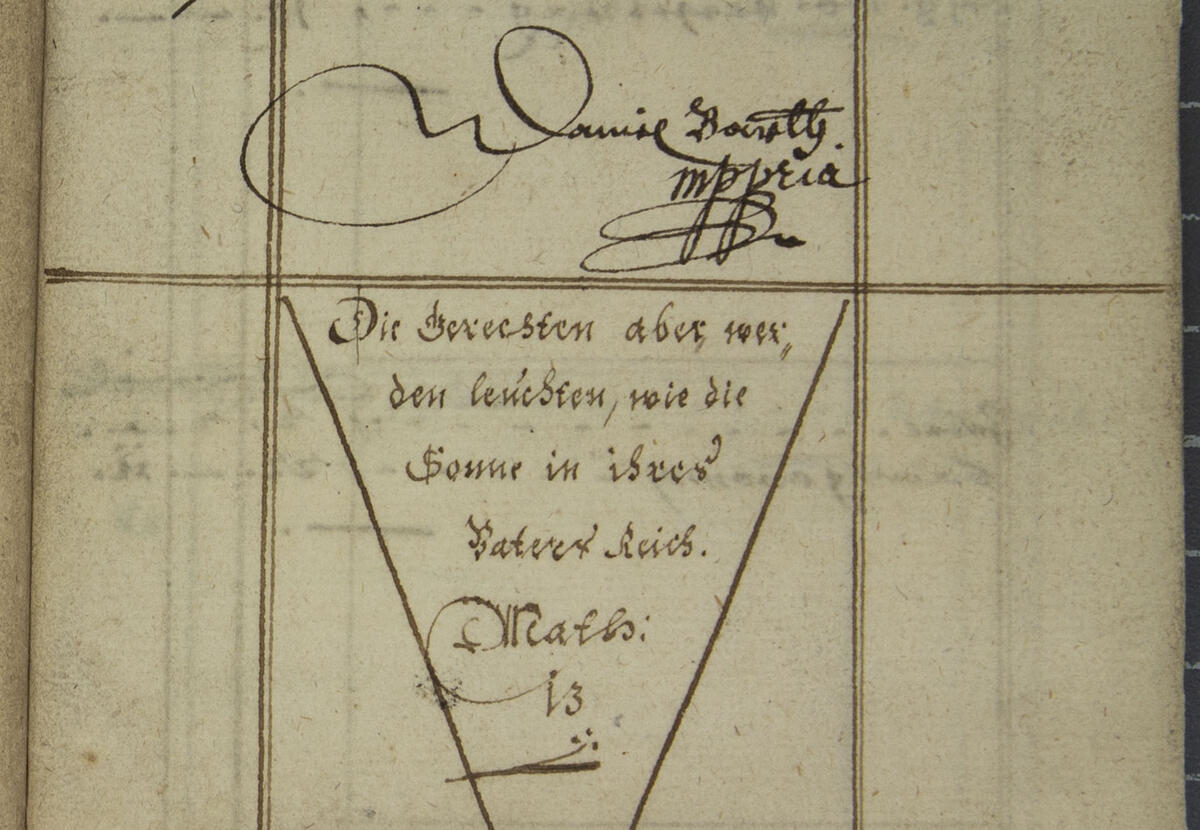 Daniel Barth
mppria
Die Gerechten aber, wer„
den leuchten, wie die
Sonne in ihres
Vaters Reich.
Math:
13